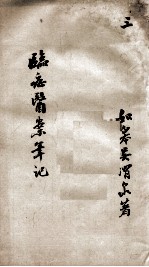 三
如皋吳渭泉著
臨症醫案筆記